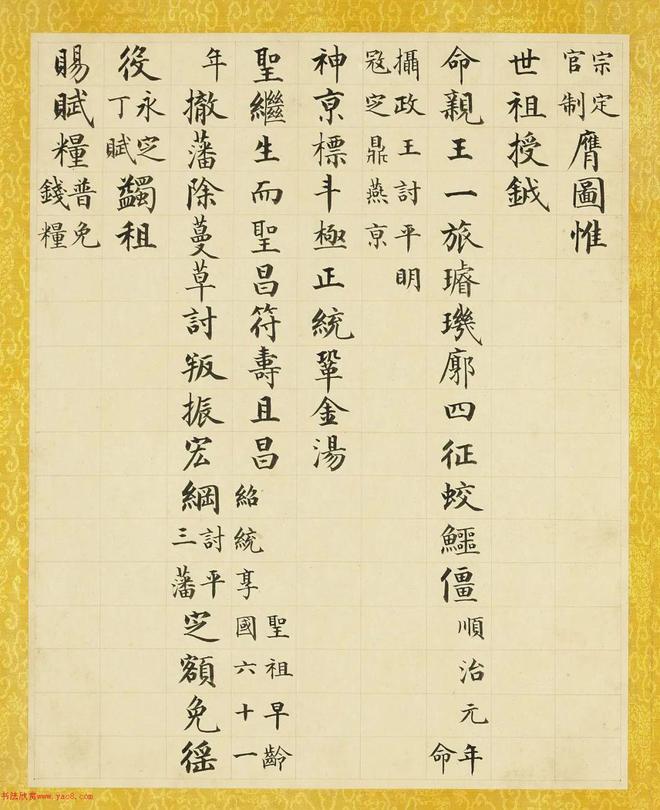 宗定官制膺圖惟
世祖授鉞
命親王一旅璿璣廓四征蛟鱷僵順治元年命
攝政王討平明寇㝎鼎燕亰
神亰標斗極正統鞏金湯
聖繼生而聖昌符壽且昌聖祖早齡紹統享國六十一
年撤藩除蔓草討叛振宏綱討平三藩㝎額免徭
役永㝎丁賦蠲租
賜賦糧普免錢糧
书法欣赏www.yac8.com